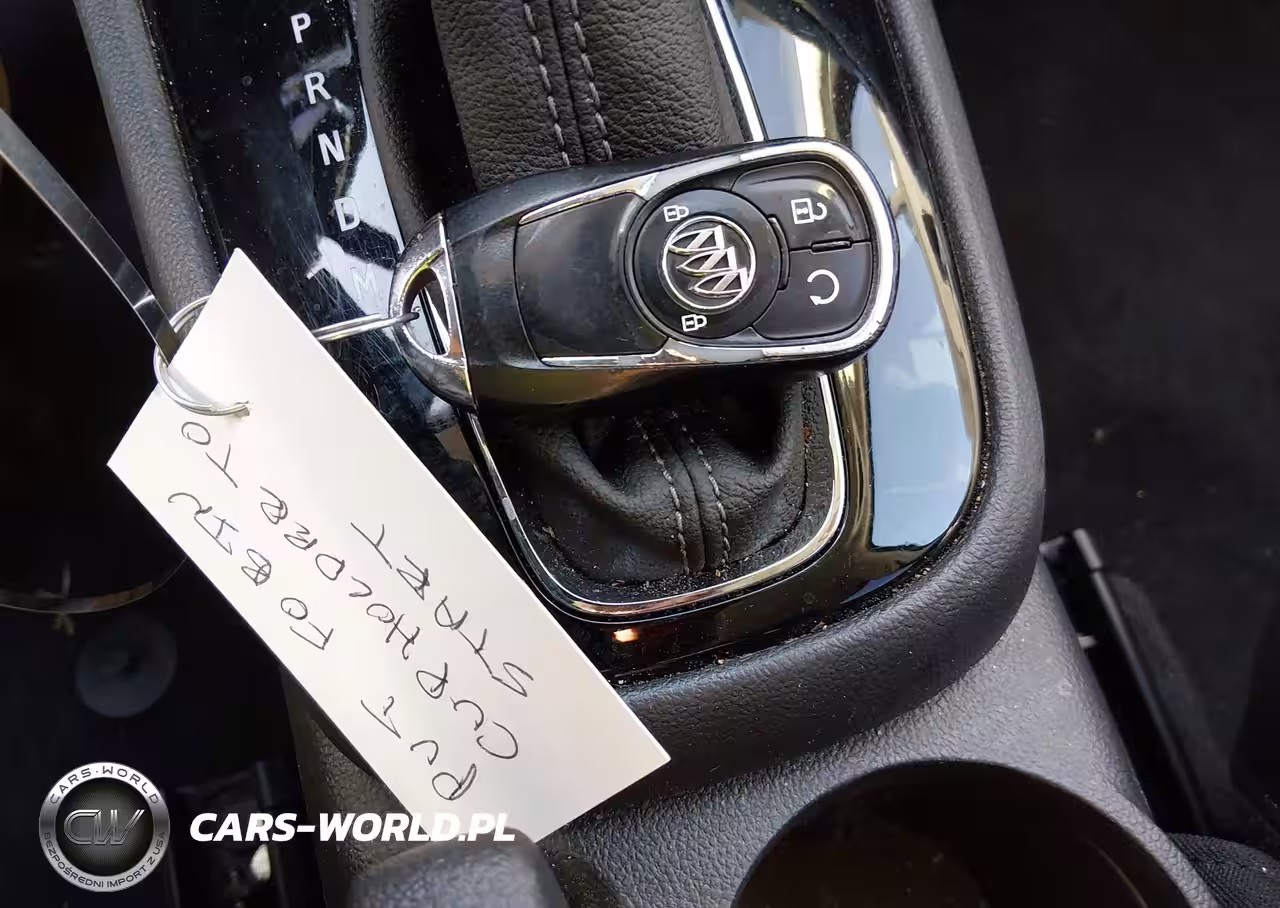 P
R
N
D
M
PUT FOB IN
CUPHOLDER TO
START
CARS-WORLD
CW
BEZPOŚREDNI IMPORT Z USA
CARS-WORLD.PL